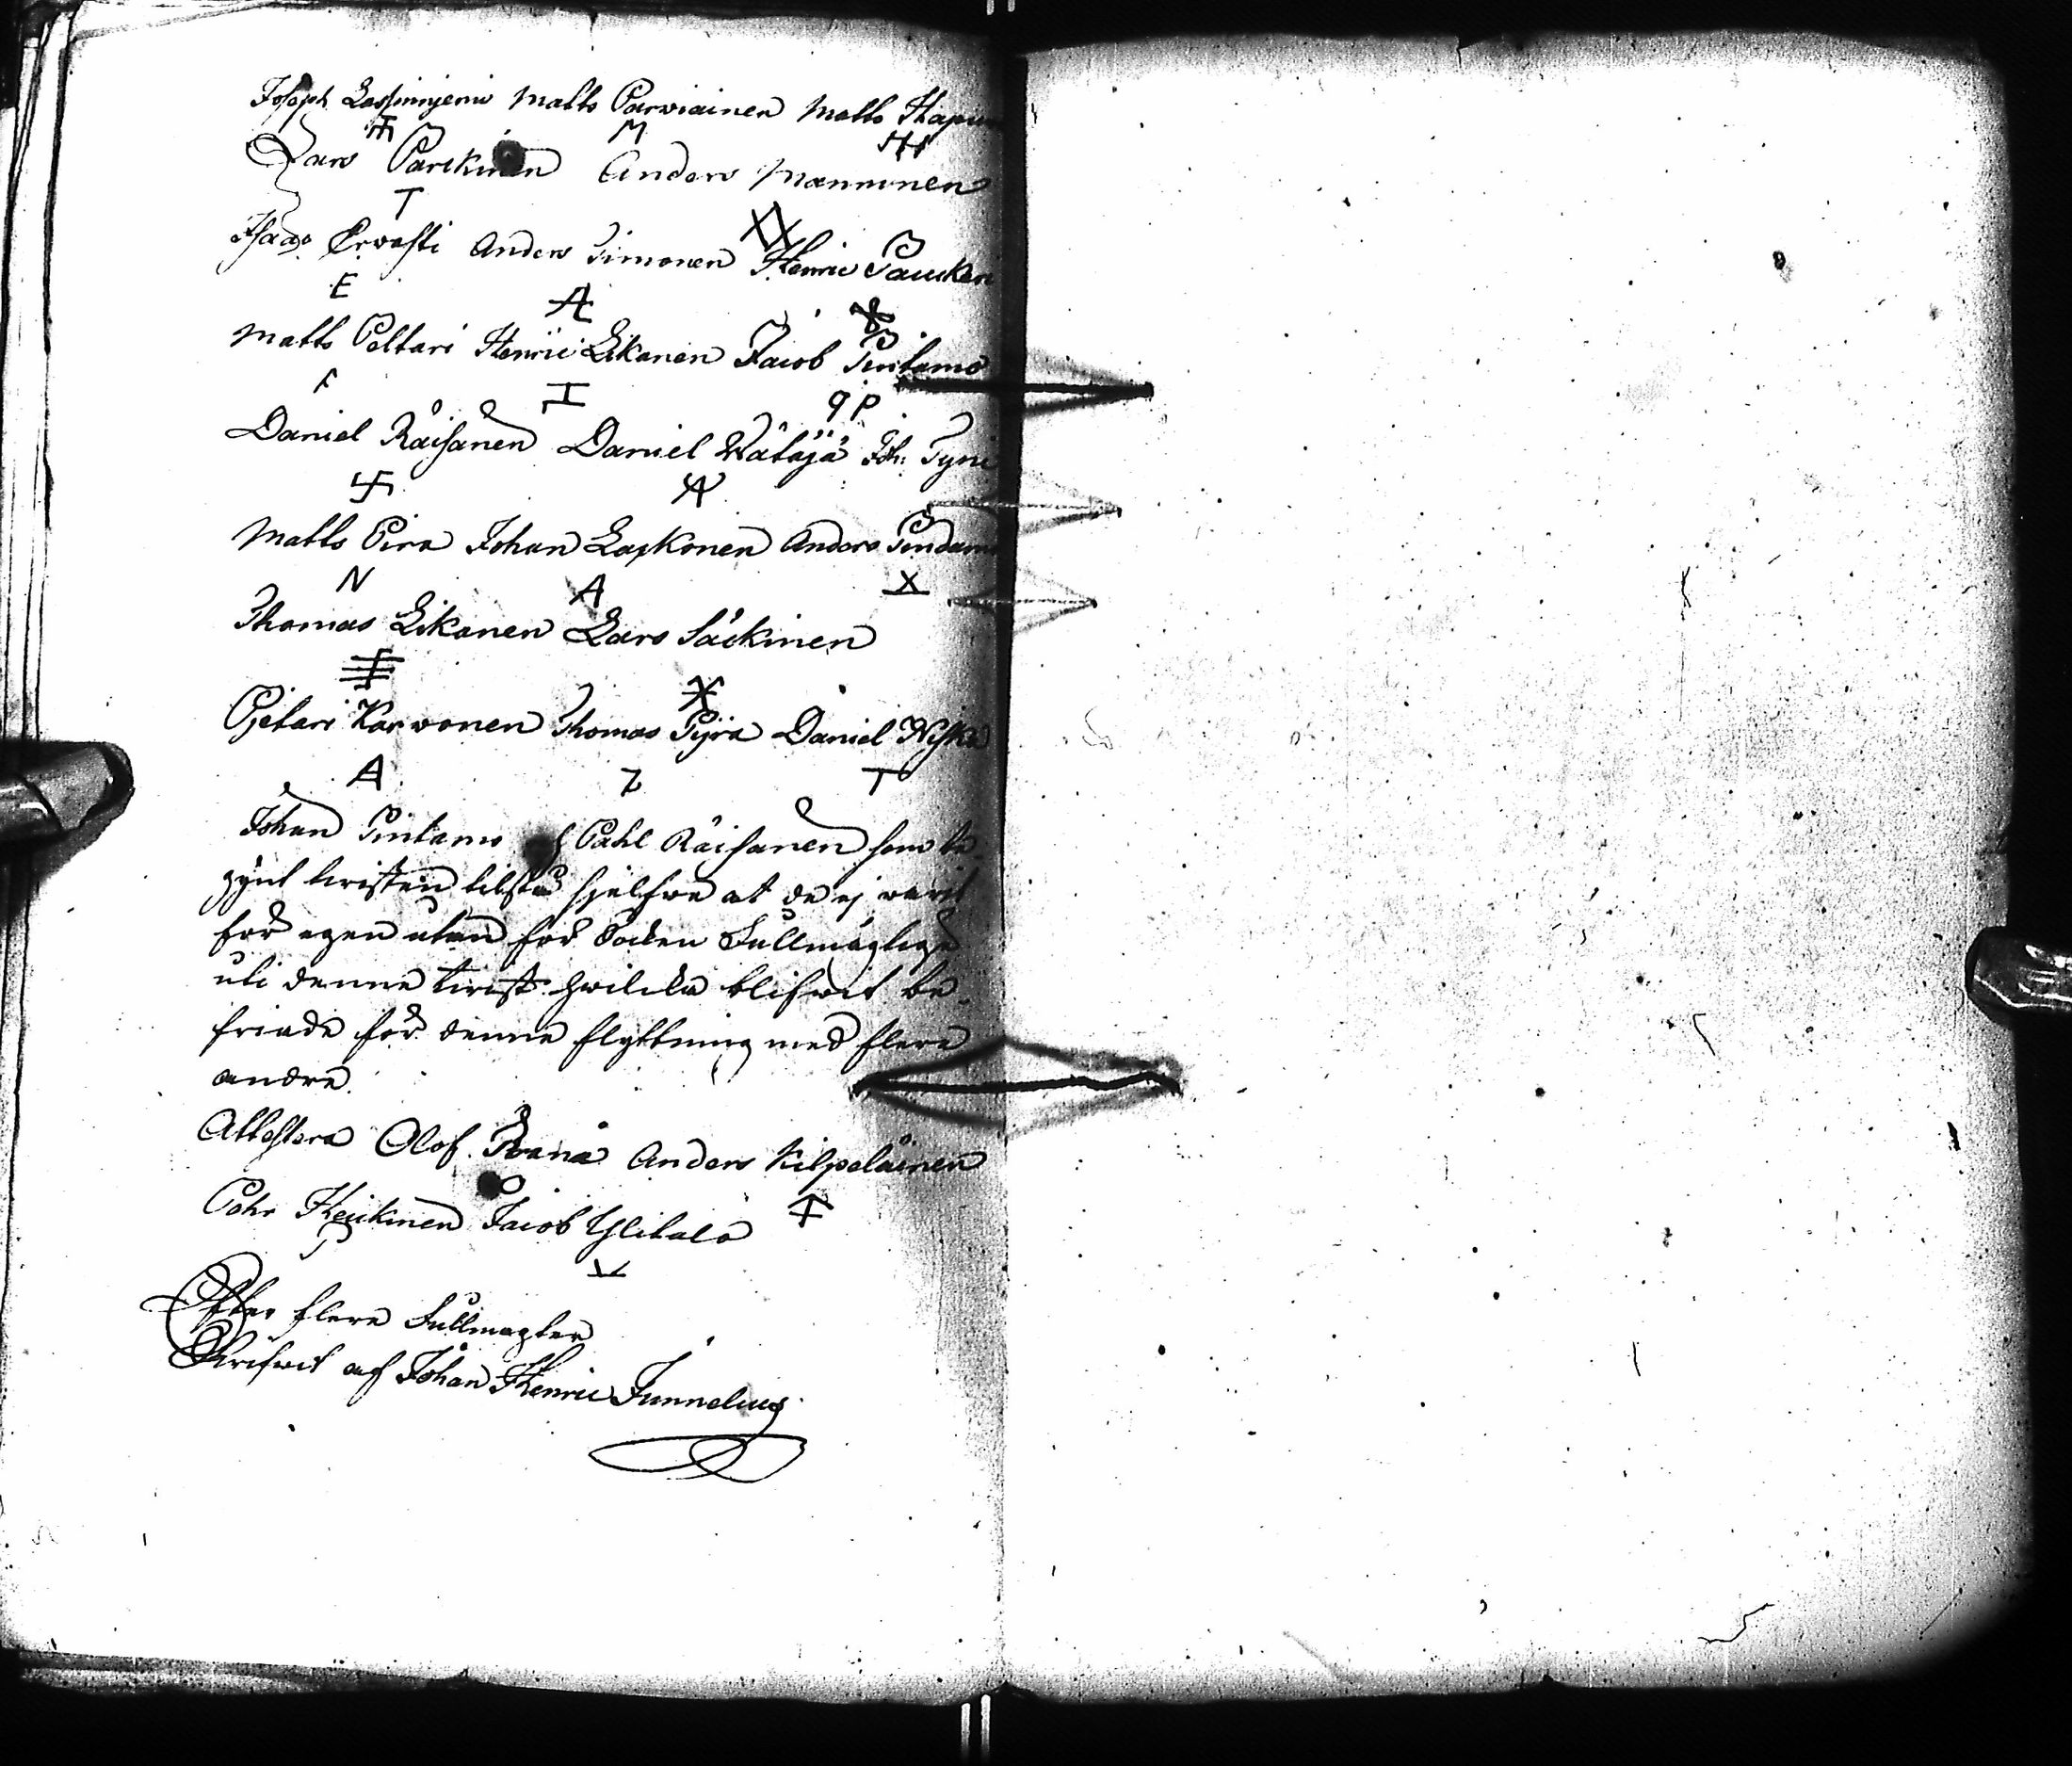 Joseph Lassinniemi Matts Parwiainen Matts
M
Lars Parckinen Anders Manninen
T
Isaac Erwasti Anders Timonen Henric Pauckeri
E A
Matts Peltari Henric Likanen Jacob Pintamo
I P
Daniel Räisänen Daniel Wätäjä Joh: Tyni
A
Matts Pira Johan Laxkonen Anders Pindamo
N A X
Thomas Likanen Lars Säckinen
Petari Karwonen Thomas Pijra Daniel Niska
A T
Johan Pintamo Påhl Räisänen som be-
gynt twisten tilstå sjelfwe at de ej warit
för egen utan för Socken Fullmägtige
uti denne twist hwilcka blifwit be-
friade för denne flyttning med flere
andre.
Attestera Olof Anders Kilpeläinen
Pehr Heickinen Jacob Ylitalo
Efter flere Fullmagter
Skrifwit af Johan Henric Junnelius